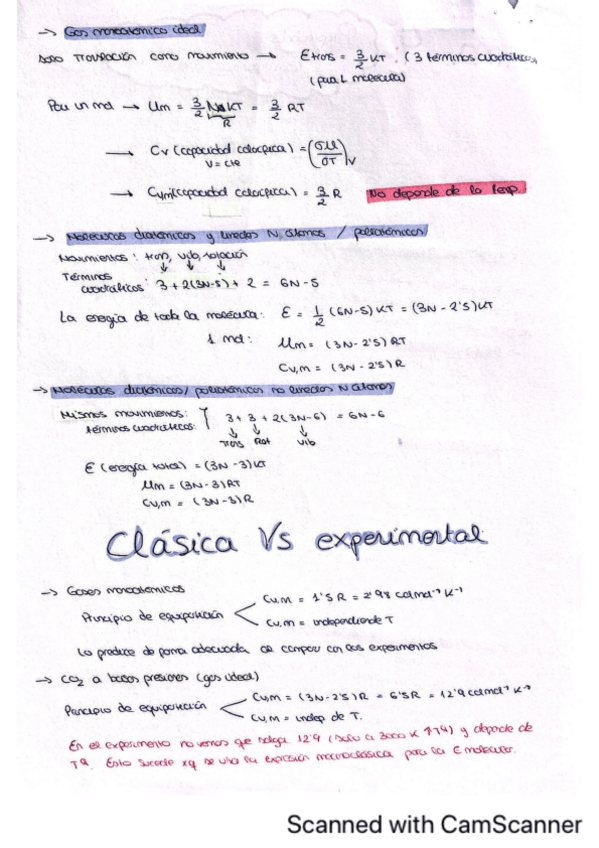 → Gas monoatómico ideal
Solo traslación como movimiento → Etras = 3/2 KT . (3 términos cuadráticos)
(para 1 molécula)
Para un mol → Um = 3/2 NA KT = 3/2 RT
R
→ Cv (capacidad calorífica) = (σU/σT)v
V = cte
→ Cv,m (capacidad calorífica) = 3/2 R No depende de la temp.
→ Moléculas diatómicas y lineales N átomos / poliatómicas
Movimientos: tras, vib, rotación
Términos cuadráticos: 3 + 2(3N-5) + 2 = 6N - 5
La energía de toda la molécula: E = 1/2 (6N-5) KT = (3N - 2'5) KT
1 mol: Um = (3N - 2'5) RT
Cv,m = (3N - 2'5) R
→ Moléculas diatómicas / poliatómicas no lineales N átomos
Mismos movimientos:
términos cuadráticos: 3 + 3 + 2(3N-6) = 6N - 6
Tras Rot vib
E (energía total) = (3N - 3) KT
Um = (3N - 3) RT
Cv,m = (3N - 3) R
Clásica Vs experimental
→ Gases monoatómicos
Principio de equipartición
Cv,m = 1'5 R = 2'98 calmol⁻¹ K⁻¹
Cv,m = independiente T
Lo predice de forma adecuada al comparar con los experimentos
→ CO2 a bajas presiones (gas ideal)
Principio de equipartición
Cv,m = (3N - 2'5) R = 6'5R = 12'9 calmol⁻¹ K⁻¹
Cv,m = indep de T.
En el experimento no vemos que salga 12'9 (solo a 3000 K ↑Tª) y depende de
Tª. Esto sucede xq se usa la expresión macroclásica para la E molecular.
Scanned with CamScanner